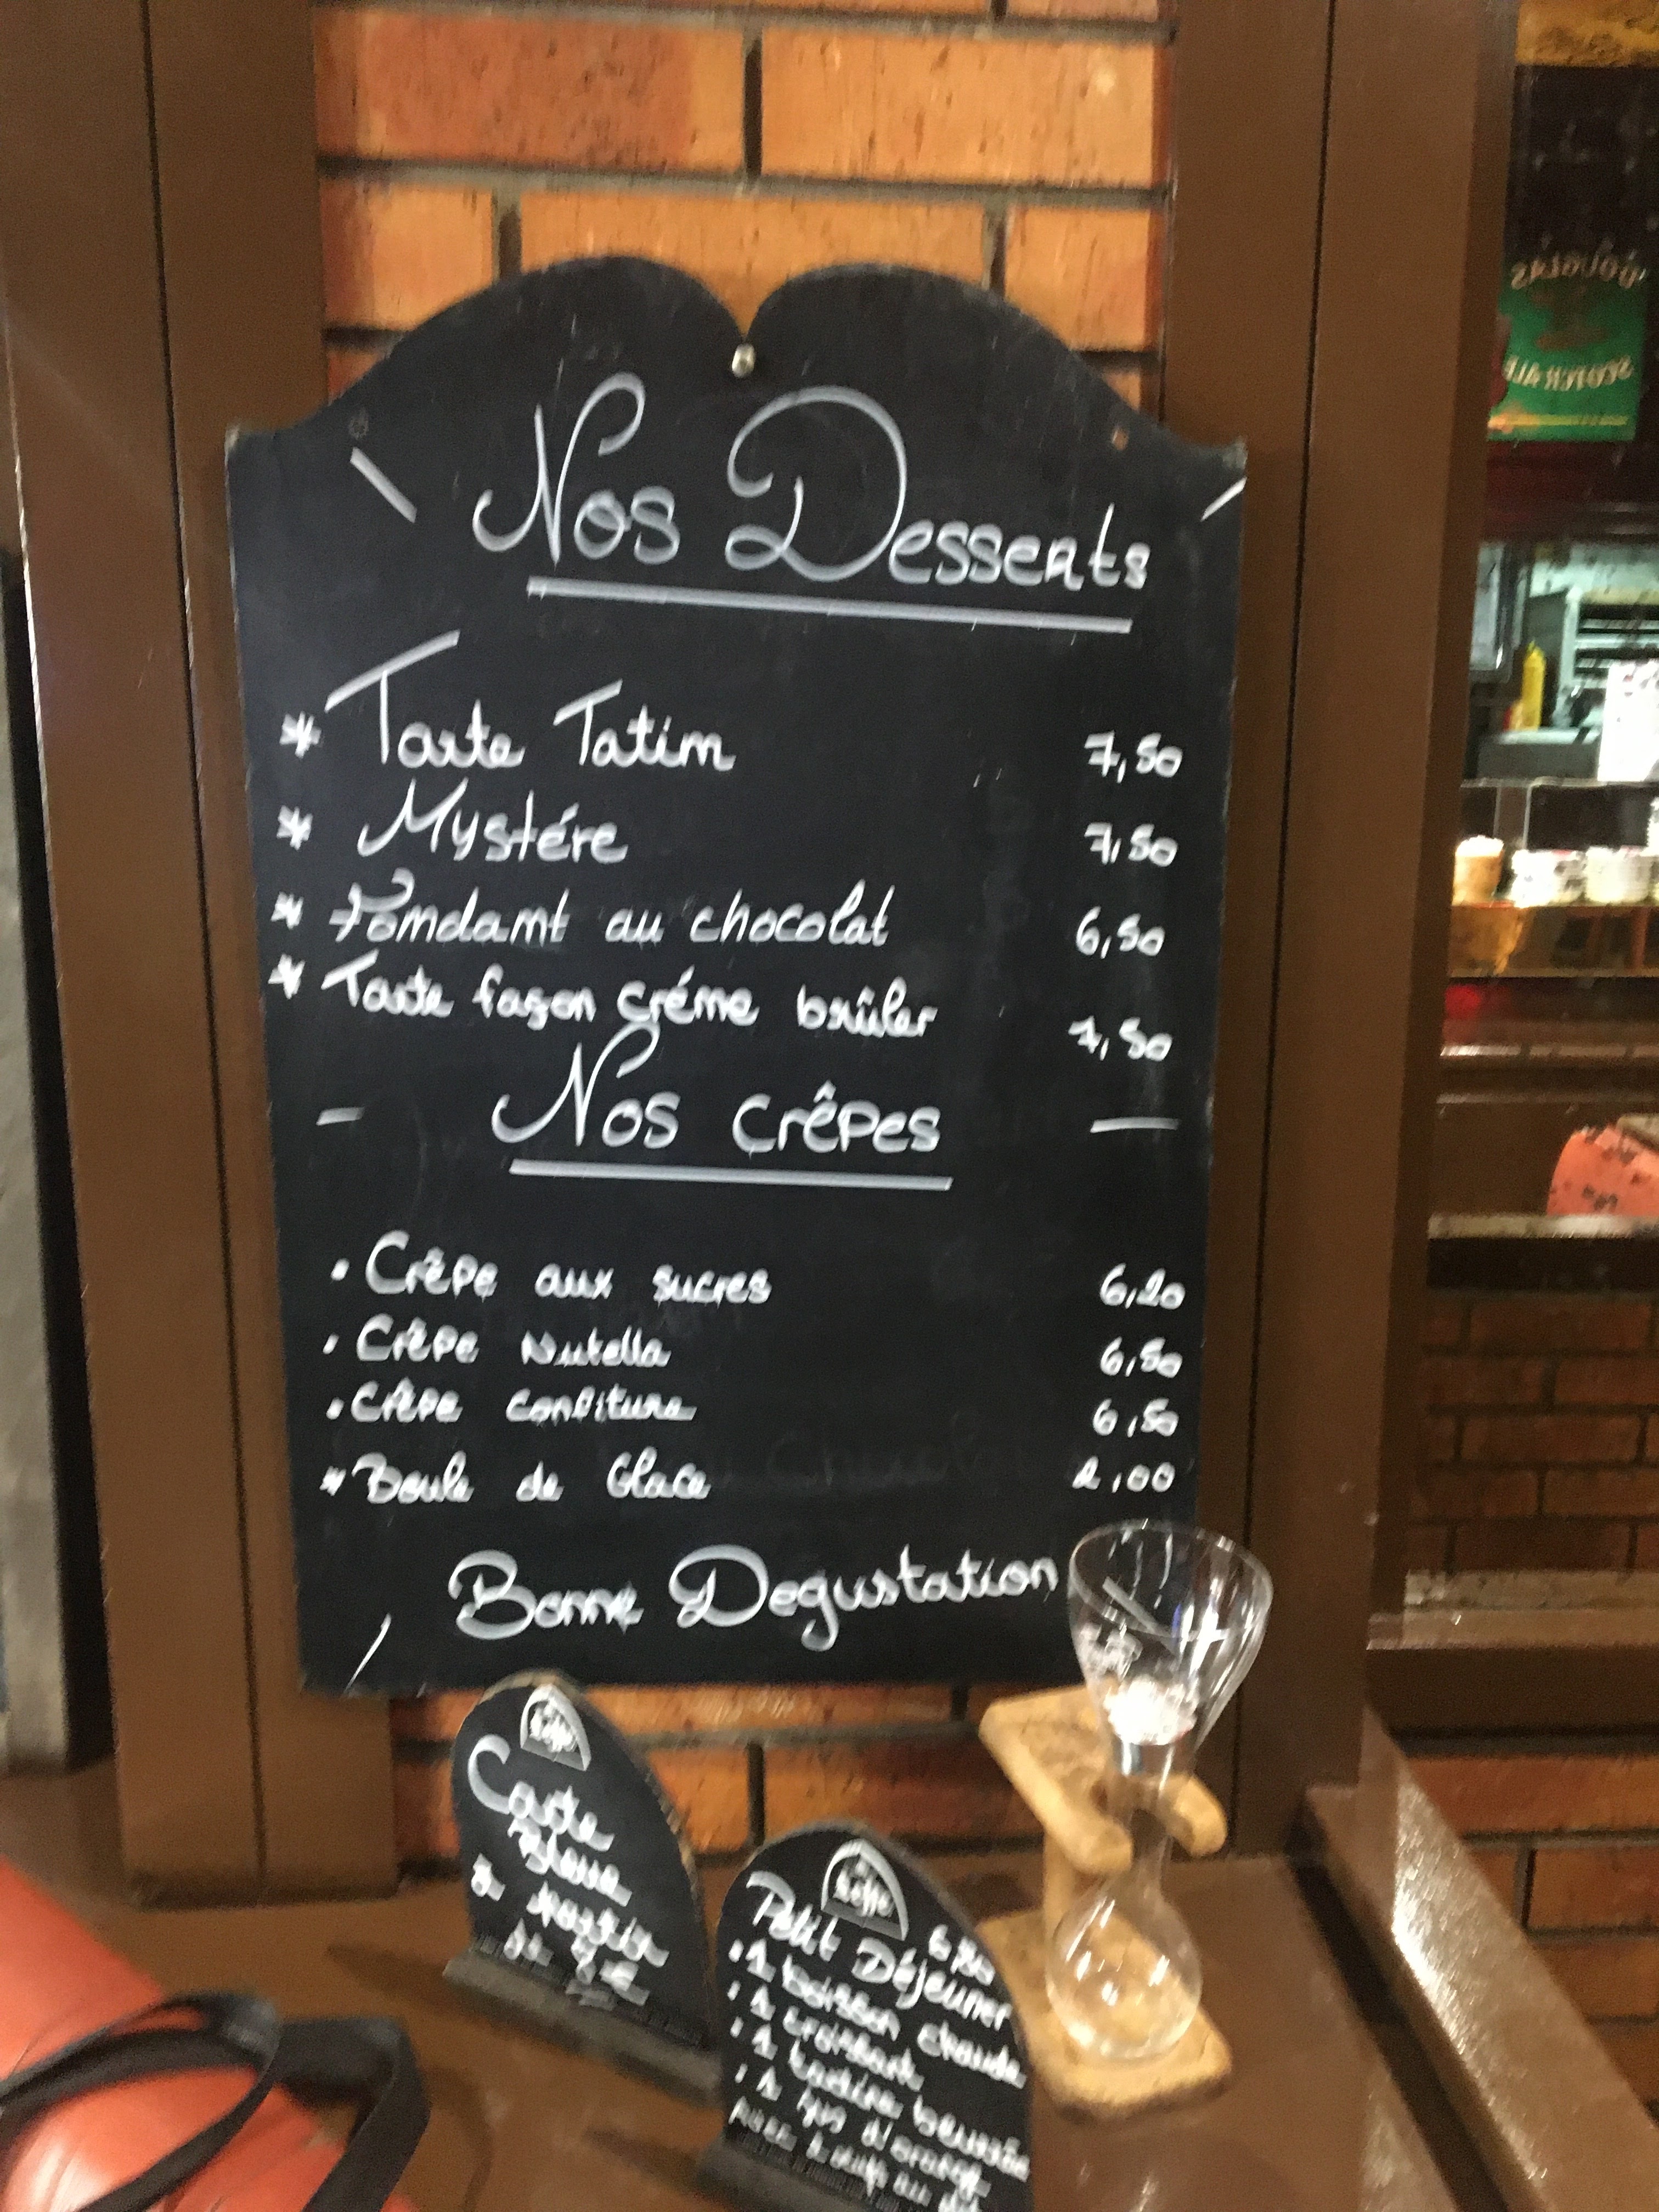 Nos Desserts
* Tarte Tatim 7,50
* Mystére 7,50
* Fomdamt au chocolat 6,50
* Tarte façon créme brûler 7,50
- Nos crêpes -
• Crêpe aux sucres 6,20
• Crêpe Nutella 6,50
• Crêpe confiture 6,50
* Boule de Glace 2,00
Bonne Degustation
Leffe
Carte
Bleue
à partir
de 8€
Leffe
Petit Déjeuner
• 1 boisson chaude
• 1 croissant
• 1 tartine beurrée
• 1 jus d'orange
DOUGLAS
SCOTCH ALE